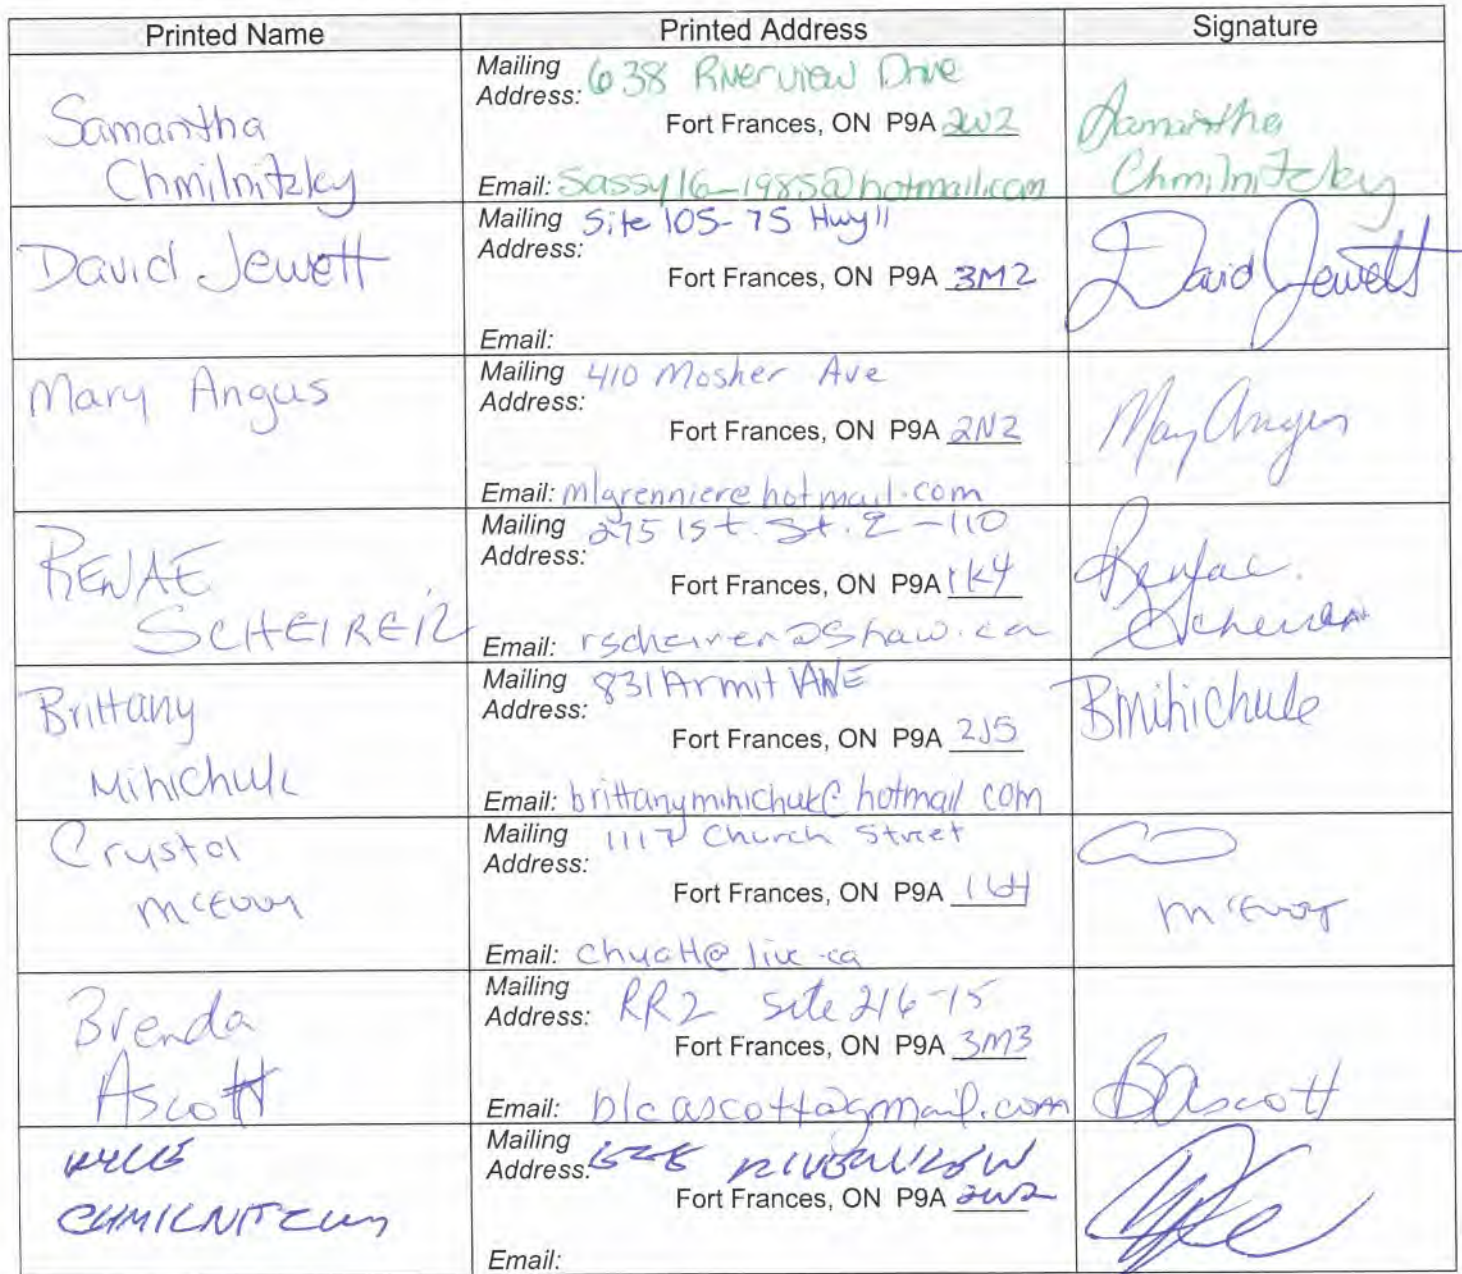 Printed Name Printed Address Signature
Samantha
Chmilnitzky
Mailing Address: 638 Riverview Drive
Fort Frances, ON P9A 2W2
Email: Sassy16_1985@hotmail.com
Samantha
Chmilnitzky
David Jewett
Mailing Address: Site 105-75 Hwy 11
Fort Frances, ON P9A 3M2
Email:
David Jewett
Mary Angus
Mailing Address: 410 Mosher Ave
Fort Frances, ON P9A 2N2
Email: mlgrenniere@hotmail.com
Mary Angus
RENAE
SCHEIRER
Mailing Address: 275 1st. St. E -110
Fort Frances, ON P9A 1K4
Email: rscheirer@shaw.ca
Renae
Scheirer
Brittany
Mihichuk
Mailing Address: 831 Armit AVE
Fort Frances, ON P9A 2J5
Email: brittanymihichuk@hotmail.com
BMihichuk
Crystal
McEvoy
Mailing Address: 1117 Church Street
Fort Frances, ON P9A
Email: chyatt@live.ca
McEvoy
Brenda
Ascott
Mailing Address: RR2 Site 216-15
Fort Frances, ON P9A 3M3
Email: blcascott@gmail.com
BAscott
KYLE
CHMILNITZKY
Mailing Address: RIVERVIEW
Fort Frances, ON P9A 2W2
Email: